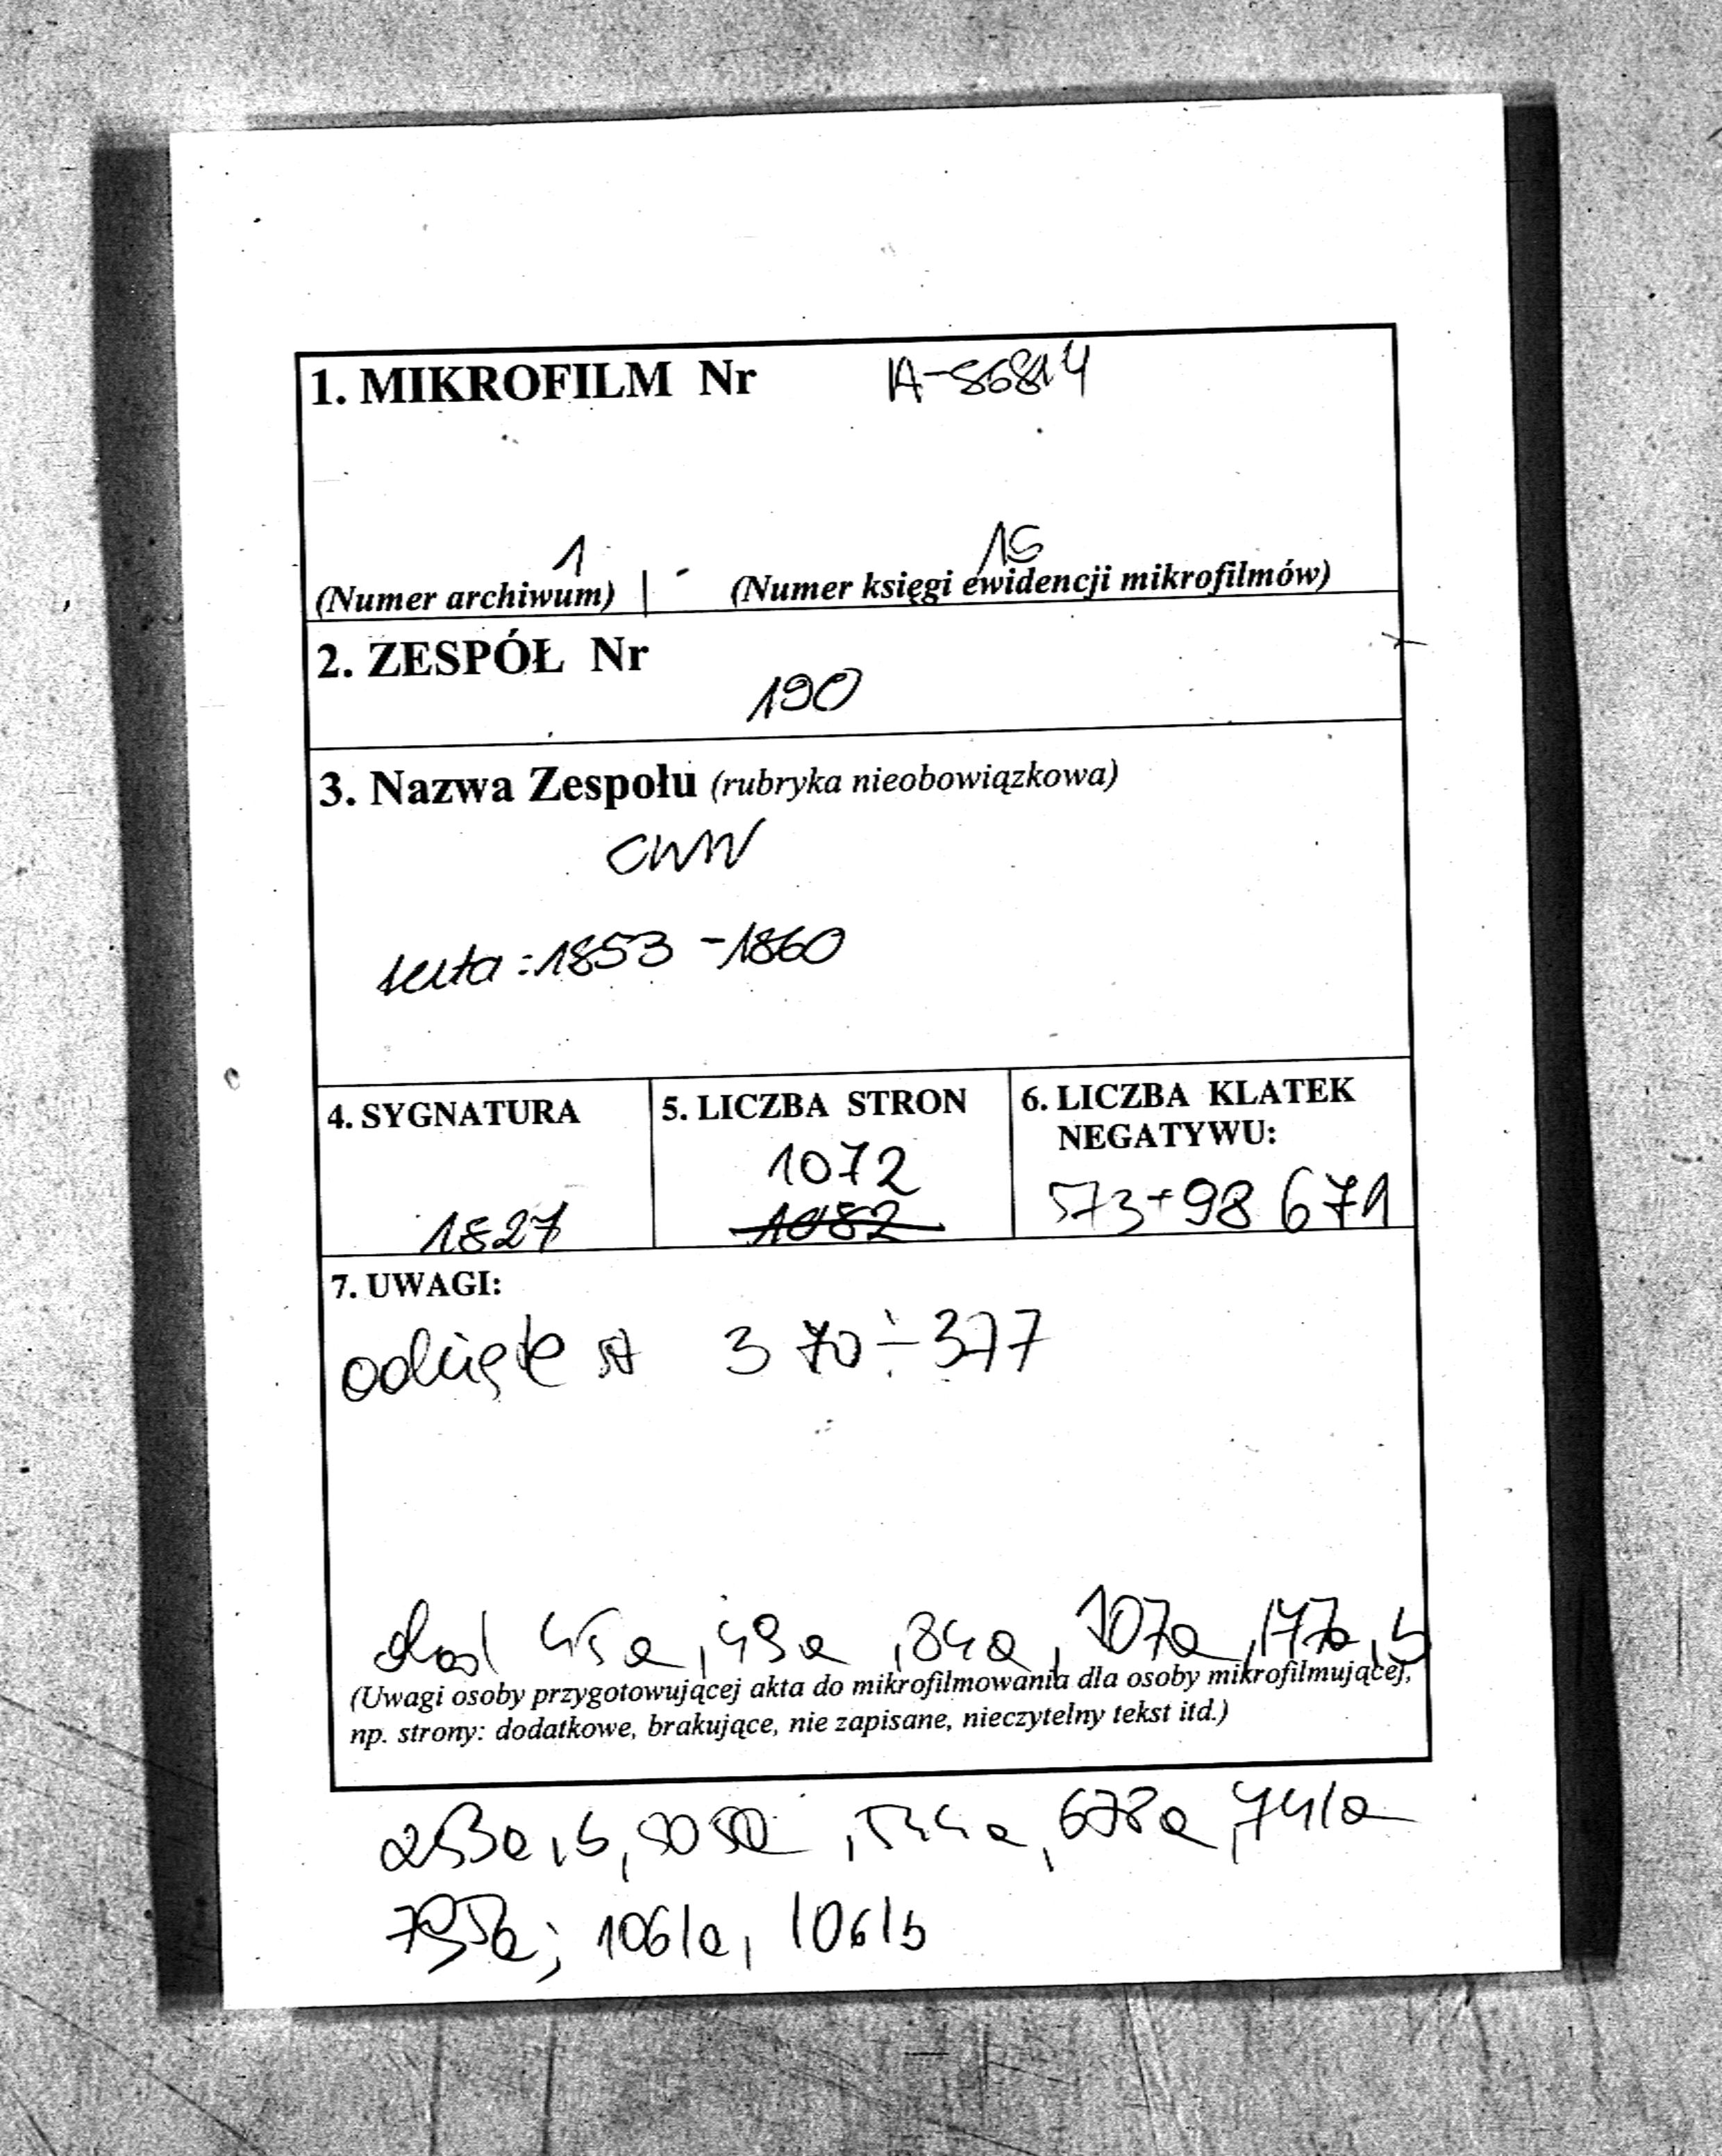 1. MIKROFILM Nr
1 16
(Numer archiwum) | - (Numer księgi ewidencji mikrofilmów)
2. ZESPÓŁ Nr
190
3. Nazwa Zespołu (rubryka nieobowiązkowa)
CWW
1853-1860
4. SYGNATURA 5. LICZBA STRON 6. LICZBA KLATEK
NEGATYWU:
1072
1827 1082 573+98 671
7. UWAGI:
odcięte st 370÷377
dod 45a, 49a, 84a, 107a, 177a, b
(Uwagi osoby przygotowującej akta do mikrofilmowania dla osoby mikrofilmującej,
np. strony: dodatkowe, brakujące, nie zapisane, nieczytelny tekst itd.)
253a, b, 544a, 678a, 741a
795a; 1061a, 1061b